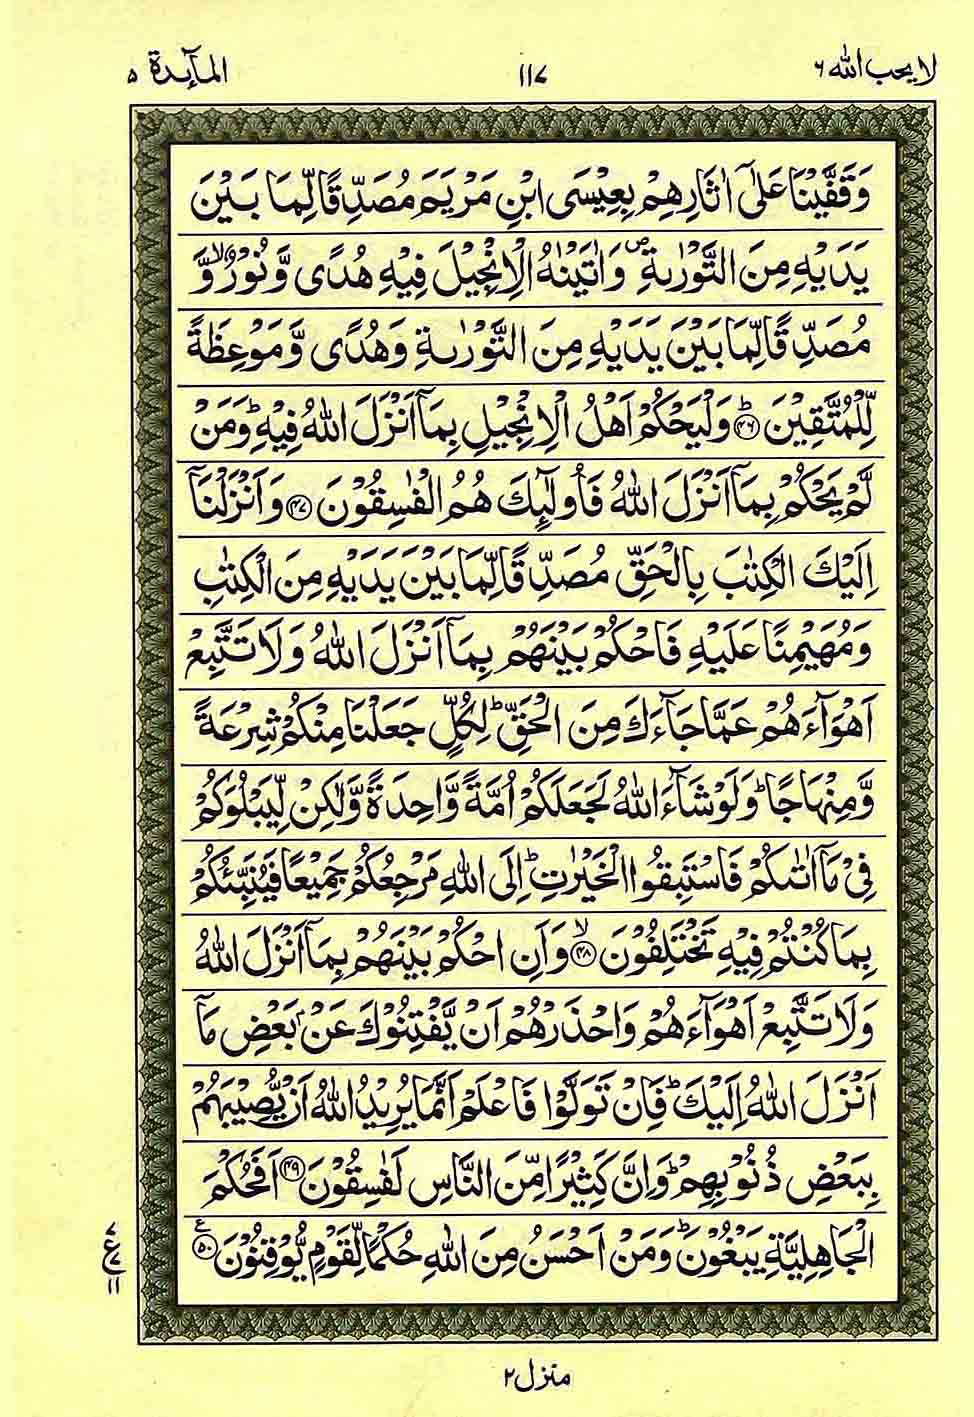 لا یحب الله ٦
١١٧
المآئدة ٥
وَقَفَّيْنَا عَلٰٓى اٰثَارِهِمْ بِعِيْسَى ابْنِ مَرْيَمَ مُصَدِّقًا لِّمَا بَيْنَ
يَدَيْهِ مِنَ التَّوْرٰىةِ ۪ وَاٰتَيْنٰهُ الْاِنْجِيْلَ فِيْهِ هُدًى وَّنُوْرٌ ۙ وَّ
مُصَدِّقًا لِّمَا بَيْنَ يَدَيْهِ مِنَ التَّوْرٰىةِ وَهُدًى وَّمَوْعِظَةً
لِّلْمُتَّقِيْنَ ؕ ﴿۴۶﴾ وَلْيَحْكُمْ اَهْلُ الْاِنْجِيْلِ بِمَاۤ اَنْزَلَ اللّٰهُ فِيْهِ ؕ وَمَنْ
لَّمْ يَحْكُمْ بِمَاۤ اَنْزَلَ اللّٰهُ فَاُولٰٓئِكَ هُمُ الْفٰسِقُوْنَ ﴿۴۷﴾ وَاَنْزَلْنَاۤ
اِلَيْكَ الْكِتٰبَ بِالْحَقِّ مُصَدِّقًا لِّمَا بَيْنَ يَدَيْهِ مِنَ الْكِتٰبِ
وَمُهَيْمِنًا عَلَيْهِ فَاحْكُمْ بَيْنَهُمْ بِمَاۤ اَنْزَلَ اللّٰهُ وَلَا تَتَّبِعْ
اَهْوَآءَهُمْ عَمَّا جَآءَكَ مِنَ الْحَقِّ ؕ لِكُلٍّ جَعَلْنَا مِنْكُمْ شِرْعَةً
وَّمِنْهَاجًا ؕ وَلَوْ شَآءَ اللّٰهُ لَجَعَلَكُمْ اُمَّةً وَّاحِدَةً وَّلٰكِنْ لِّيَبْلُوَكُمْ
فِيْ مَاۤ اٰتٰىكُمْ فَاسْتَبِقُوا الْخَيْرٰتِ ؕ اِلَى اللّٰهِ مَرْجِعُكُمْ جَمِيْعًا فَيُنَبِّئُكُمْ
بِمَا كُنْتُمْ فِيْهِ تَخْتَلِفُوْنَ ۙ ﴿۴۸﴾ وَاَنِ احْكُمْ بَيْنَهُمْ بِمَاۤ اَنْزَلَ اللّٰهُ
وَلَا تَتَّبِعْ اَهْوَآءَهُمْ وَاحْذَرْهُمْ اَنْ يَّفْتِنُوْكَ عَنْۢ بَعْضِ مَاۤ
اَنْزَلَ اللّٰهُ اِلَيْكَ ؕ فَاِنْ تَوَلَّوْا فَاعْلَمْ اَنَّمَا يُرِيْدُ اللّٰهُ اَنْ يُّصِيْبَهُمْ
بِبَعْضِ ذُنُوْبِهِمْ ؕ وَاِنَّ كَثِيْرًا مِّنَ النَّاسِ لَفٰسِقُوْنَ ﴿۴۹﴾ اَفَحُكْمَ
الْجَاهِلِيَّةِ يَبْغُوْنَ ؕ وَمَنْ اَحْسَنُ مِنَ اللّٰهِ حُكْمًا لِّقَوْمٍ يُّوْقِنُوْنَ ﴿۵۰﴾ ع
٧
ع ٧
١١
منزل ٢